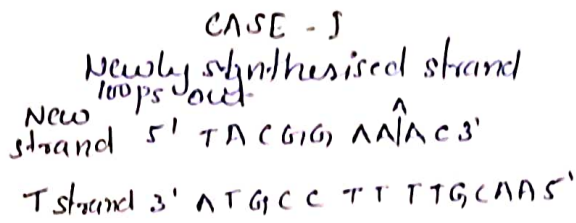 CASE - I
Newly synthesised strand
loops out
New
strand 5' TACGG AAAAC3'
A
T strand 3' ATGCC TTTTGCAA5'